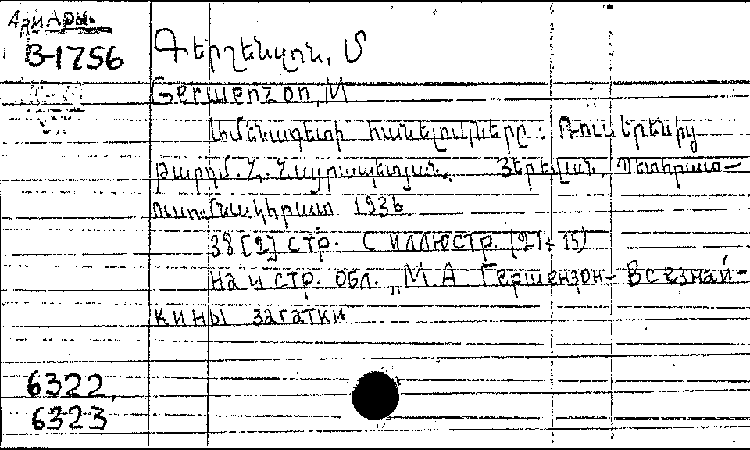 В-1756
Գերշենզոն, Մ
Gershenzon, M
Ամենագետի հանելուկները: Ռուսերենից
թարգմ. Հ. Հայրապետյան. Յերեվան, Պետհրատ—
1936
38 [2] стр. с иллюстр. (21÷15)
на 4 стр. обл. „М А Гершензон- Всезнай-
кины загатки
6322,
6323